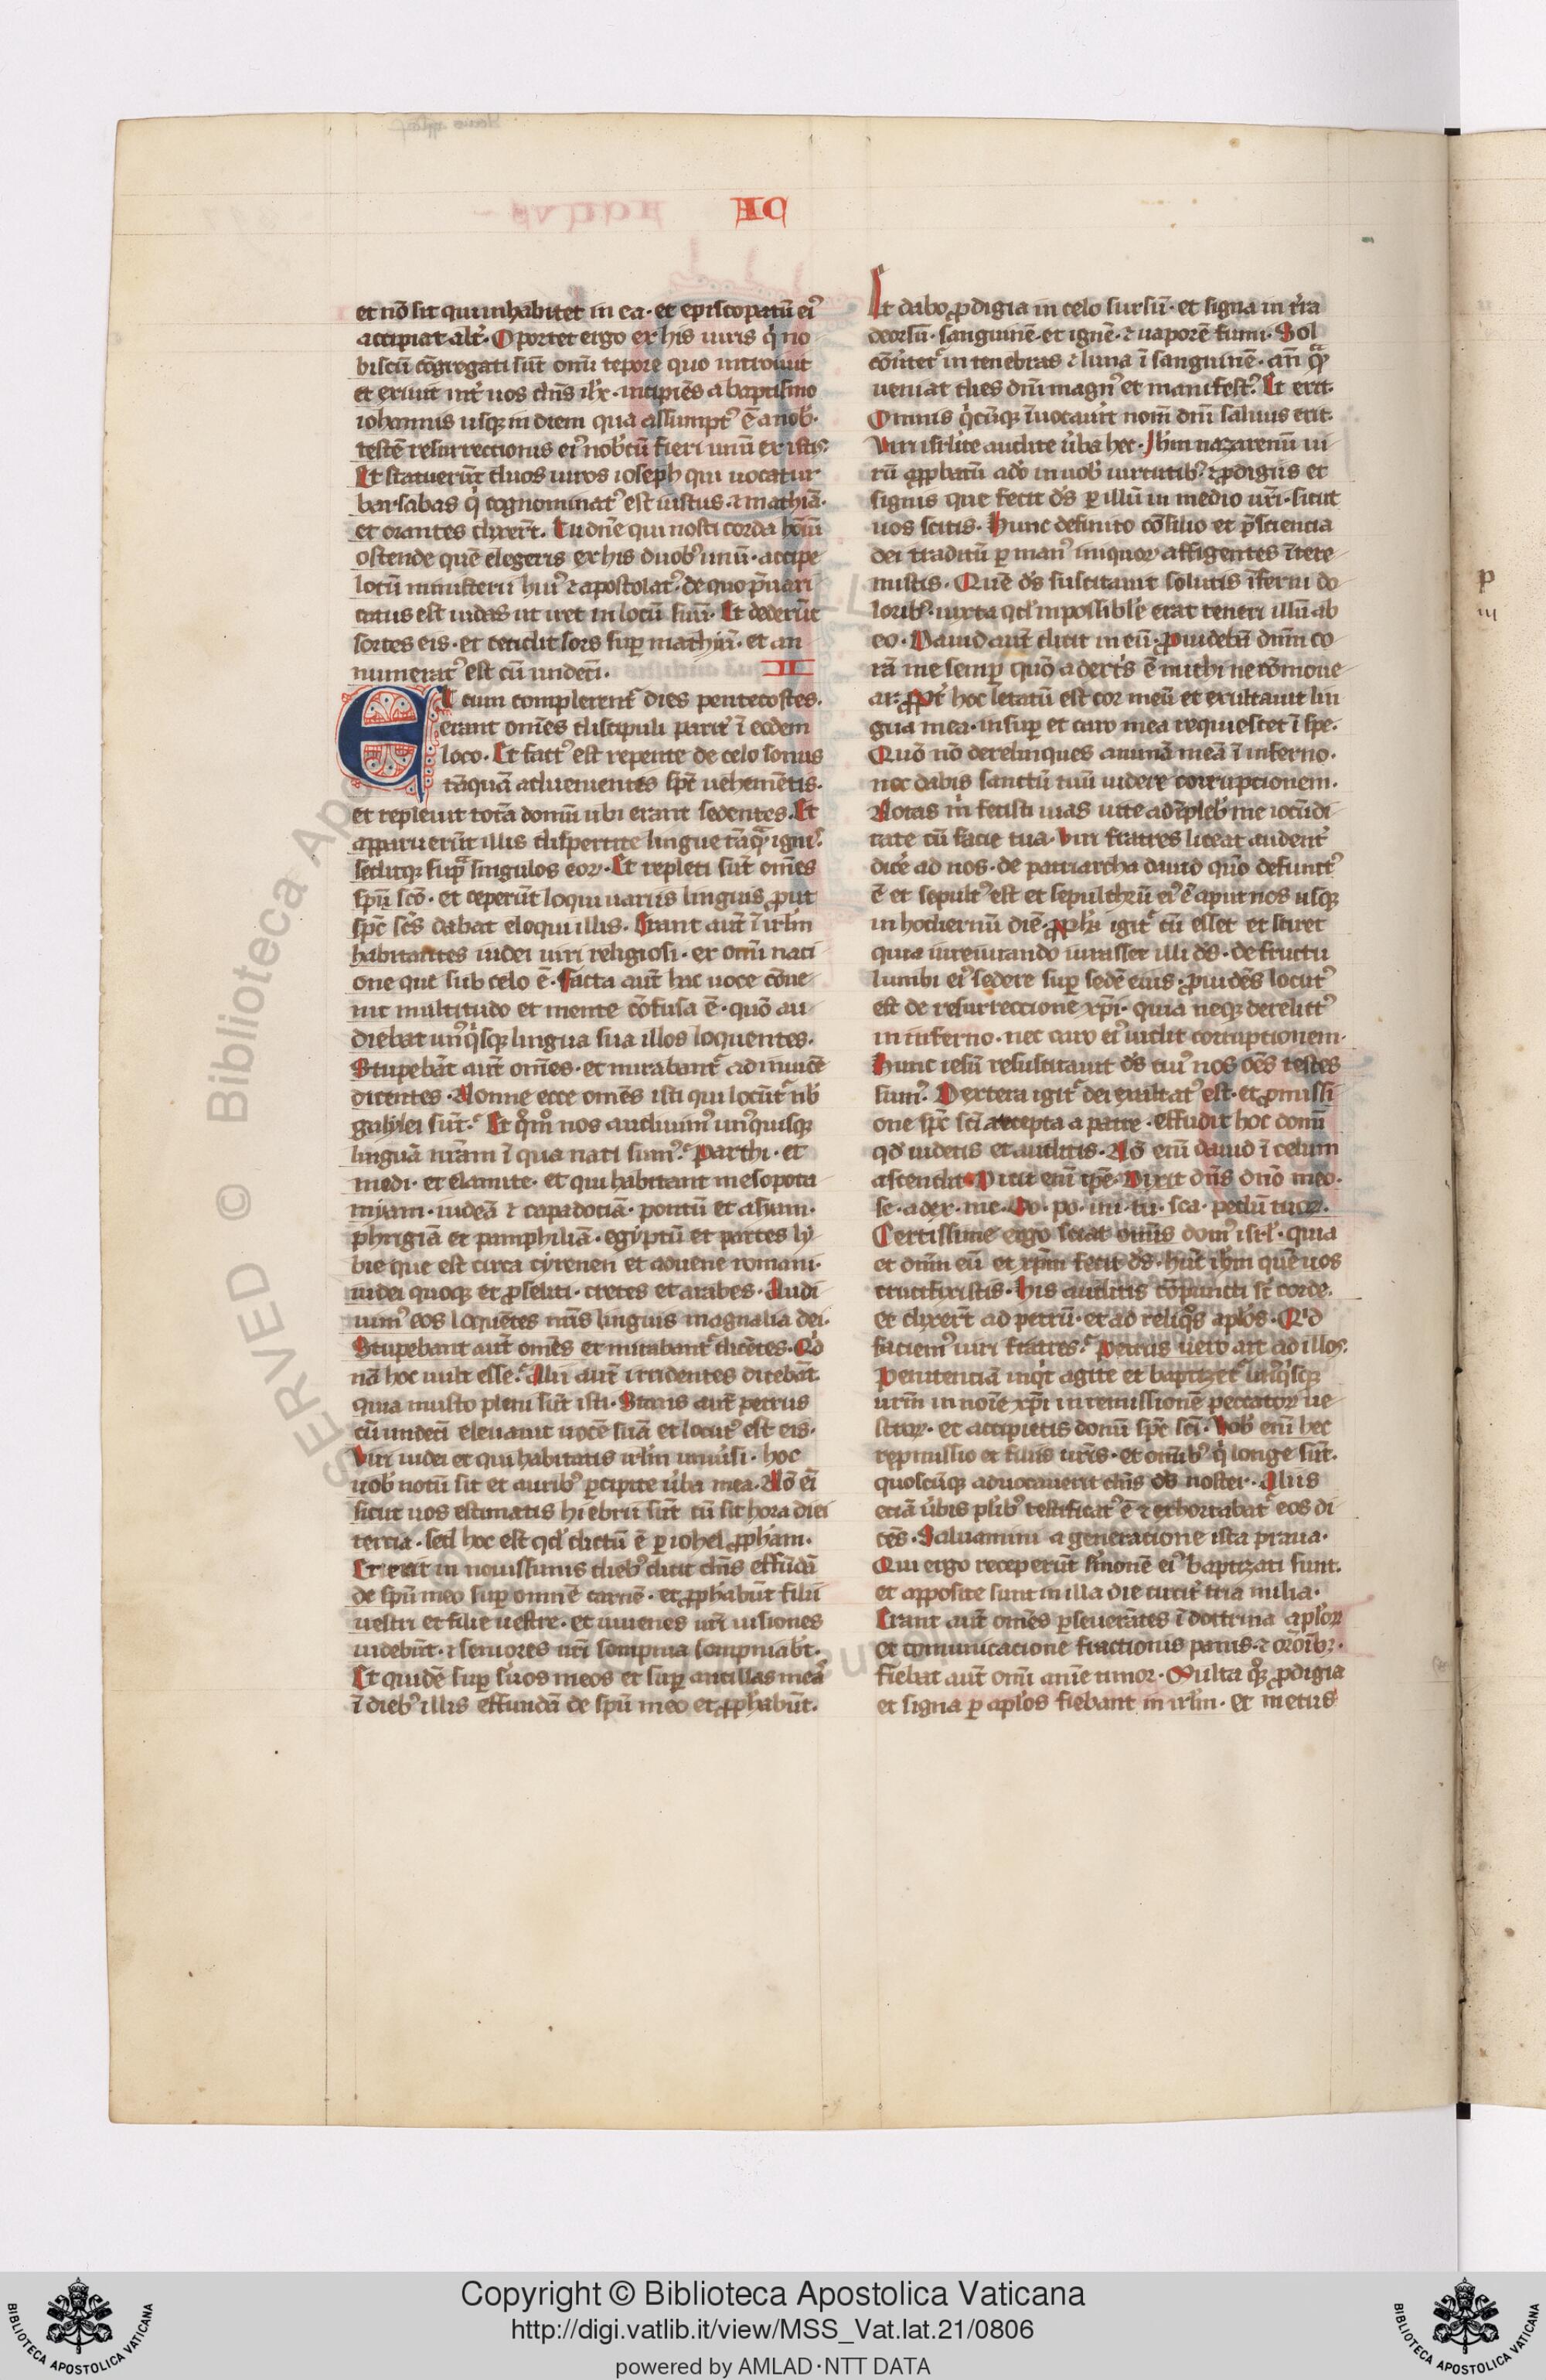 AC
et nō sit qui inhabitet in ea · et episcopatū eiꝰ
accipiat alt̓ · Oportet ergo ex his uiris q̓ no
biscū cōgregati sūt om̄i tēpore quo introiuit
et exiuit int̓ nos dn̄s ih̓c · incipiēs a baptismo
iohannis usq̨ in diem qua assumptꝰ ē a nob̓ ·
testē resurrectionis eiꝰ nob̓cū fieri unū ex istis ·
Et statuerūt duos uiros ioseph qui uocatur
barsabas q̓ cognominatꝰ est iustus · ⁊ mathiā ·
et orantes dixer̄t · Tu dn̄e qui nosti corda hoīm
ostende quē elegeris ex his duobꝰ unū · accipe
locū ministerii huiꝰ ⁊ apostolatꝰ · de quo p̄uari
catus est iudas ut iret in locū suū · Et dederūt
sortes eis · et cecidit sors suꝑ mathiā · et an
numeratꝰ est cū undeci ·
II
Et cum complerent᷑ dies pentecostes ·
erant om̄es discipuli parit̓ ī eodem
loco · Et factꝰ est repente de celo sonus
tāquā aduenientes sp̄c uehemētis ·
et repleuit totā domū ubi erant sedentes · Et
apparuerūt illis dispertite lingue tāq̄ ignis ·
seditq̨ supᷓ singulos eoꝝ · Et repleti sūt om̄es
sp̄u sc̄o · et ceperūt loqui uariis linguis ꝓut
sp̄c sc̄s dabat eloqui illis · Erant aut̄ ī irl̄m
habitantes iudei uiri religiosi · ex om̄i naci
one que sub celo ē · Facta aut̄ hac uoce cōue
nit multitudo et mente cōfusa ē · quō au
diebat unꝰq̓sq̨ lingua sua illos loquentes ·
Stupebāt aut̄ om̄es · et mirabant᷑ ad inuicē
dicentes · Nonne ecce om̄es isti qui locūt᷑
galylei sūt · Et qͦm̄ nos audiuimꝰ unꝰquisq̨
linguā nr̄am ī qua nati sumꝰ · Parthi · et
medi · et elamite · et qui habitant mesopota
myam · iudeā ⁊ capadociā · pontū et asyam ·
phrigiā et pamphiliā · egyptū et partes ly
bie que est circa cyrenen et aduene romani ·
iudei quoq̨ et ꝓseliti · cretes et arabes · Audi
uimꝰ eos loquētes nr̄is linguis magnalia dei ·
Stupebant aut̄ om̄es et mirabant᷑ dicētes · Qd̓
nā hoc uult esse · Alii aut̄ irridentes dicebāt
quia musto pleni sūt isti · Stans aut̄ petrus
cū undeci eleuauit uocē suā et locutꝰ est eis ·
Viri iudei et qui habitatis irl̄m uniu̓si · hoc
uob̓ notū sit et auribꝰ ꝑcipite u̓ba mea · Nō ei̓
sicut uos estimatis hi ebrii sūt cū sit hora diei
tercia · sed hoc est qd̓ dictū ē ꝑ iohel ꝓph̄am ·
Et erit in nouissimis diebꝰ dicit dn̄s effūdā
de sp̄u meo suꝑ omnē carnē · et ꝓph̄abūt filii
uestri et filie uestre · et iuuenes ur̄i uisiones
uidebūt · ⁊ seniores ur̄i sompnia sompniabt̄ ·
Et quidē suꝑ su̓os meos et suꝑ ancillas meas
ī diebꝰ illis effundā de sp̄u meo et ꝓph̄abūt ·
Et dabo ꝓdigia in celo sursū · et signa in t̓ra
deorsū · sanguinē · et ignē · ⁊ uaporē fumi · Sol
cōu̓tet᷑ in tenebras ⁊ luna ī sanguinē · an̄ qᷓ
ueniat dies dn̄i magnꝰ et manifestꝰ · Et erit ·
Omnis q̓cūq̨ īuocau̓it nom̄ dn̄i saluus erit ·
Viri isrl̓ite audite u̓ba hec · Ih̄m nazarenū ui
rū apꝓbatū a dō in uob̓ uirtutibꝰ · ⁊ ꝓdigiis et
signis que fecit ds̄ ꝑ illū in medio ur̄i · sicut
uos scitis · Hunc definito cōsilio et p̄sciencia
dei traditū ꝑ manꝰ iniquoꝝ affigentes ītere
mistis · Quē ds̄ suscitauit solutis īferni do
loribꝰ · iuxta qd̓ impossible erat teneri illū ab
eo · Dauid aut̄ dicit in eū · ꝓuidebā dn̄m co
rā me semꝑ quō a dextris ē michi ne cōmoue
ar · ꝓpt̓ hoc letatū est cor meū et exultauit lin
gua mea · insuꝑ et caro mea requiescet ī spe ·
Quō nō derelinques animā meā ī inferno ·
nec dabis sanctū tuū uidere corrupcionem ·
Notas m̓ fecisti uias uite adīpleb̓ me iocūdi
tate cū facie tua · Viri fratres liceat audent̓
dic̓e ad nos · de patriarcha dauid quō defunctꝰ
ē et sepultꝰ est et sepulchrū eiꝰ ē aput nos usq̨
in hodiernū diē · ꝓph̄a igit᷑ cū esset et sciret
quia iureiurando iurasset illi ds̄ · de fructu
lumbi eiꝰ sedere suꝑ sedē eius · ꝓuidēs locutꝰ
est de resurreccione xp̄i · quia neq̨ derelictꝰ
in inferno · nec caro eiꝰ uidit corruptionem ·
Hunc iesū resuscitauit ds̄ cuiꝰ nos om̄s testes
sumꝰ · Dextera igit᷑ dei exaltatꝰ est · et ꝓmissi
one sp̄c sc̄i accepta a patre · effudit hoc donū
qd̓ uidetis et auditis · Nō enī dauid ī celum
ascendit · Dicit enī ip̄e · Dixit dn̄s dn̄o meo ·
se · a dex · me · Do · po · ini · tu · sca · pedū tuoꝝ ·
Certissime ergo sciat om̄is domꝰ isrl̓ · quia
et dn̄m eū et xp̄m fecit ds̄ · hūc ih̄m quē uos
crucifixistis · His auditis cōpuncti st̄ corde ·
et dixer̄t ad petrū · et ad reliqͦs aplōs · Qͥd
faciemꝰ uiri fratres · Petrus uero ait ad illos ·
Penitenciā inqͥt agite et baptizet᷑ unꝰq̓sq̨
ur̄m in noīe xp̄i in remissionē peccatoꝝ ue
stroꝝ · et accipietis donū sp̄c sc̄i · Vob̓ enī hec
repmissio et filiis ur̄is · et om̄ibꝰ q̓ longe sūt ·
quoscūq̨ aduocauerit dn̄s ds̄ noster · Aliis
eciā u̓bis pl̓ibꝰ testificatꝰ ē ⁊ exhortabat᷑ eos di
cēs · Saluamini a generacione ista praua ·
Qui ergo receperūt s̓monē eiꝰ baptizati sunt ·
et apposite sunt in illa die circit̓ tria milia ·
Erant aut̄ om̄es ꝑseuerātes ī doctrina apl̓oꝝ
et comunicacione fractionis panis · ⁊ orōibꝫ ·
fiebat aut̄ om̄i anīe timor · Multa qͦq̨ ꝓdigia
et signa ꝑ apl̓os fiebant in irl̄m · et metus
p
© Biblioteca Apo
SERVED
Copyright © Biblioteca Apostolica Vaticana
http://digi.vatlib.it/view/MSS_Vat.lat.21/0806
powered by AMLAD·NTT DATA
BIBLIOTECA APOSTOLICA VATICANA
BIBLIOTECA APOSTOLICA VATICANA